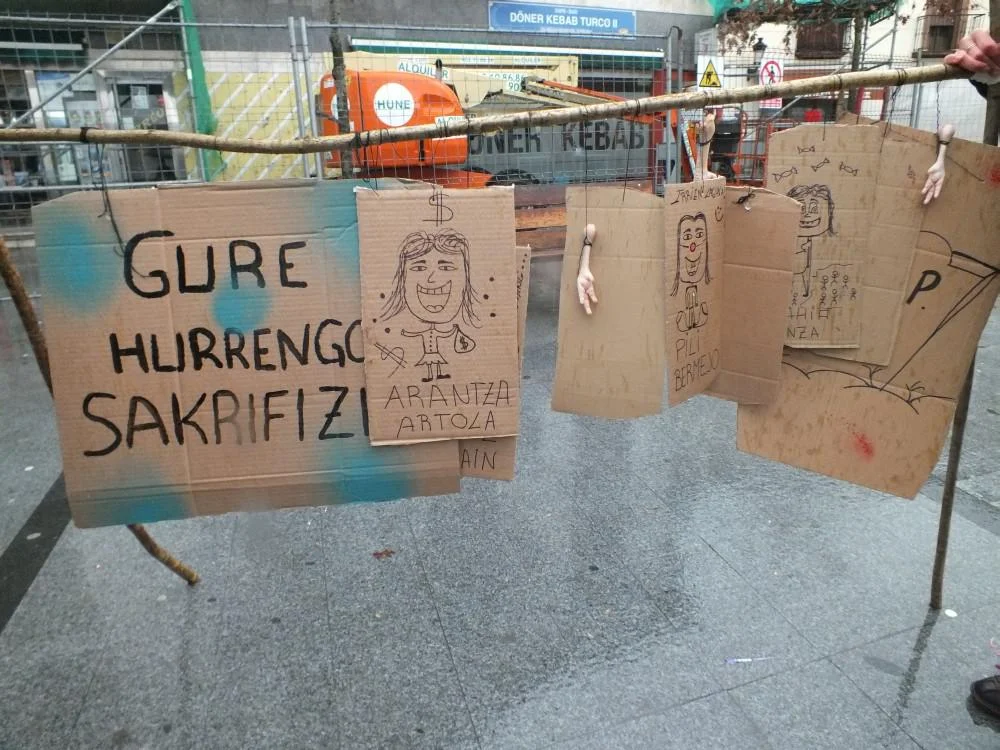 DÖNER KEBAB TURCO II
ALQUIL
HUNE
ONER KEBAB
GURE
HURRENGO
SAKRIFIZI
$
$
ARANTZA
ARTOLA
AIN
PILI
BERMEJO
NZA
P